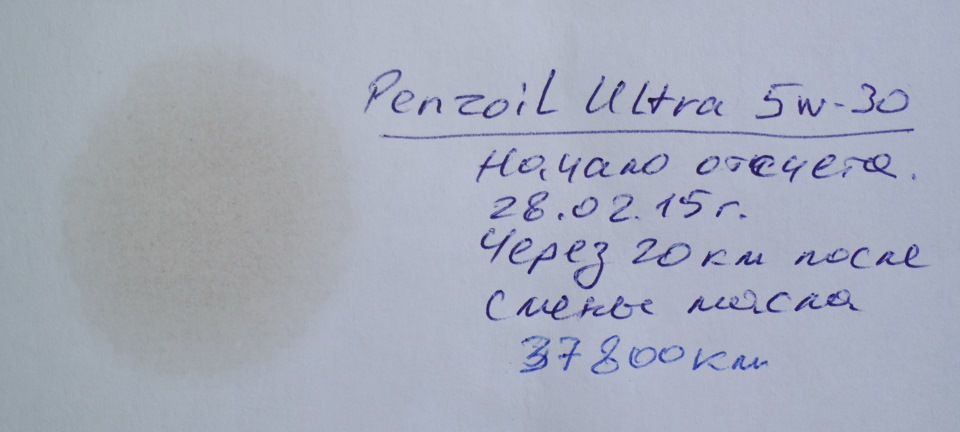 Penzoil Ultra 5w-30
Начало отсчета.
28.02.15г.
Через 20км после
смены масла
37800км